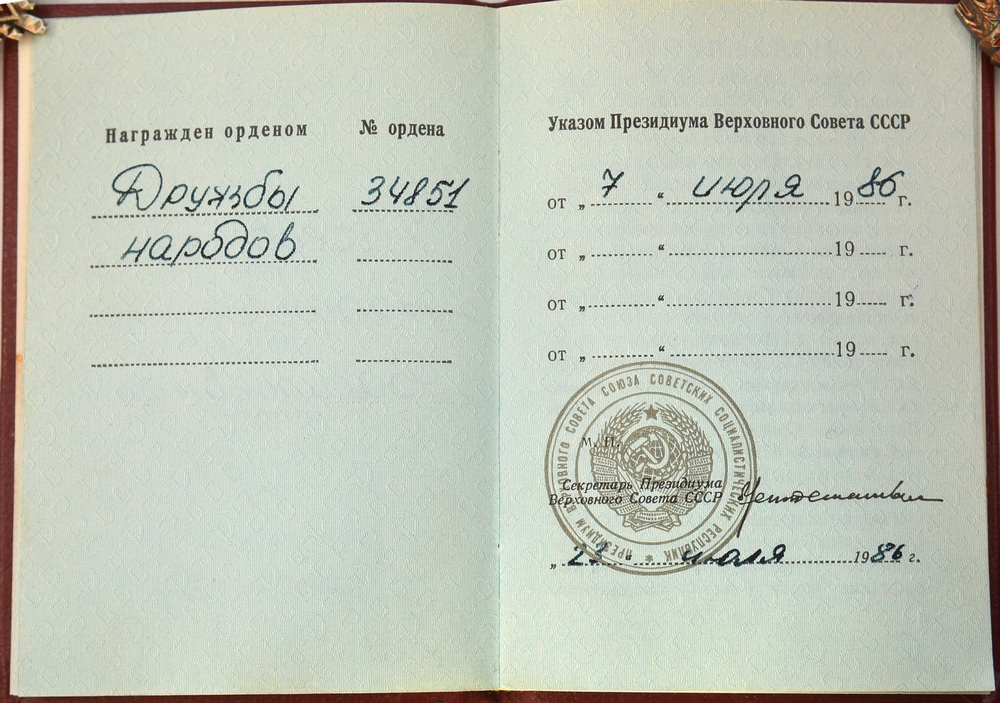 Награжден орденом № ордена
Дружбы 34851
народов
Указом Президиума Верховного Совета СССР
от „ 7 “ июля 1986 г.
от „ “ 19 г.
от „ “ 19 г.
от „ “ 19 г.
ПРЕЗИДИУМ ВЕРХОВНОГО СОВЕТА СОЮЗА СОВЕТСКИХ СОЦИАЛИСТИЧЕСКИХ РЕСПУБЛИК
М. П.
Секретарь Президиума
Верховного Совета СССР
„ “ июля 1986 г.